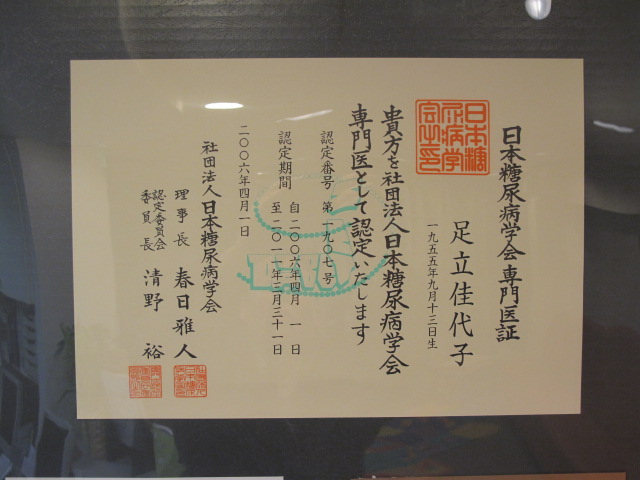 日本糖尿病学会専門医証
足立佳代子
一九五五年九月十三日生
貴方を社団法人日本糖尿病学会
専門医として認定いたします
認定番号 第一九〇七号
認定期間 自二〇〇六年四月一日
至二〇一一年三月三十一日
二〇〇六年四月一日
社団法人日本糖尿病学会
理事長 春日雅人
認定委員会
委員長 清野裕
日本糖
尿病学
会之印